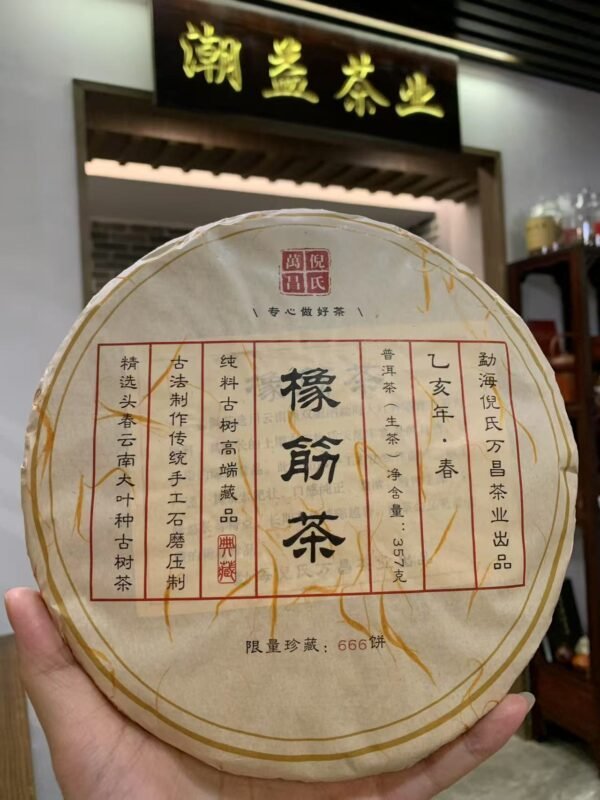 潮益茶业
倪氏
萬昌
\ 专心做好茶 \
勐海倪氏万昌茶业出品
乙亥年·春
普洱茶（生茶）净含量：357克
橡筋茶
纯料古树高端藏品 典藏
古法制作传统手工石磨压制
精选头春云南大叶种古树茶
限量珍藏：666饼